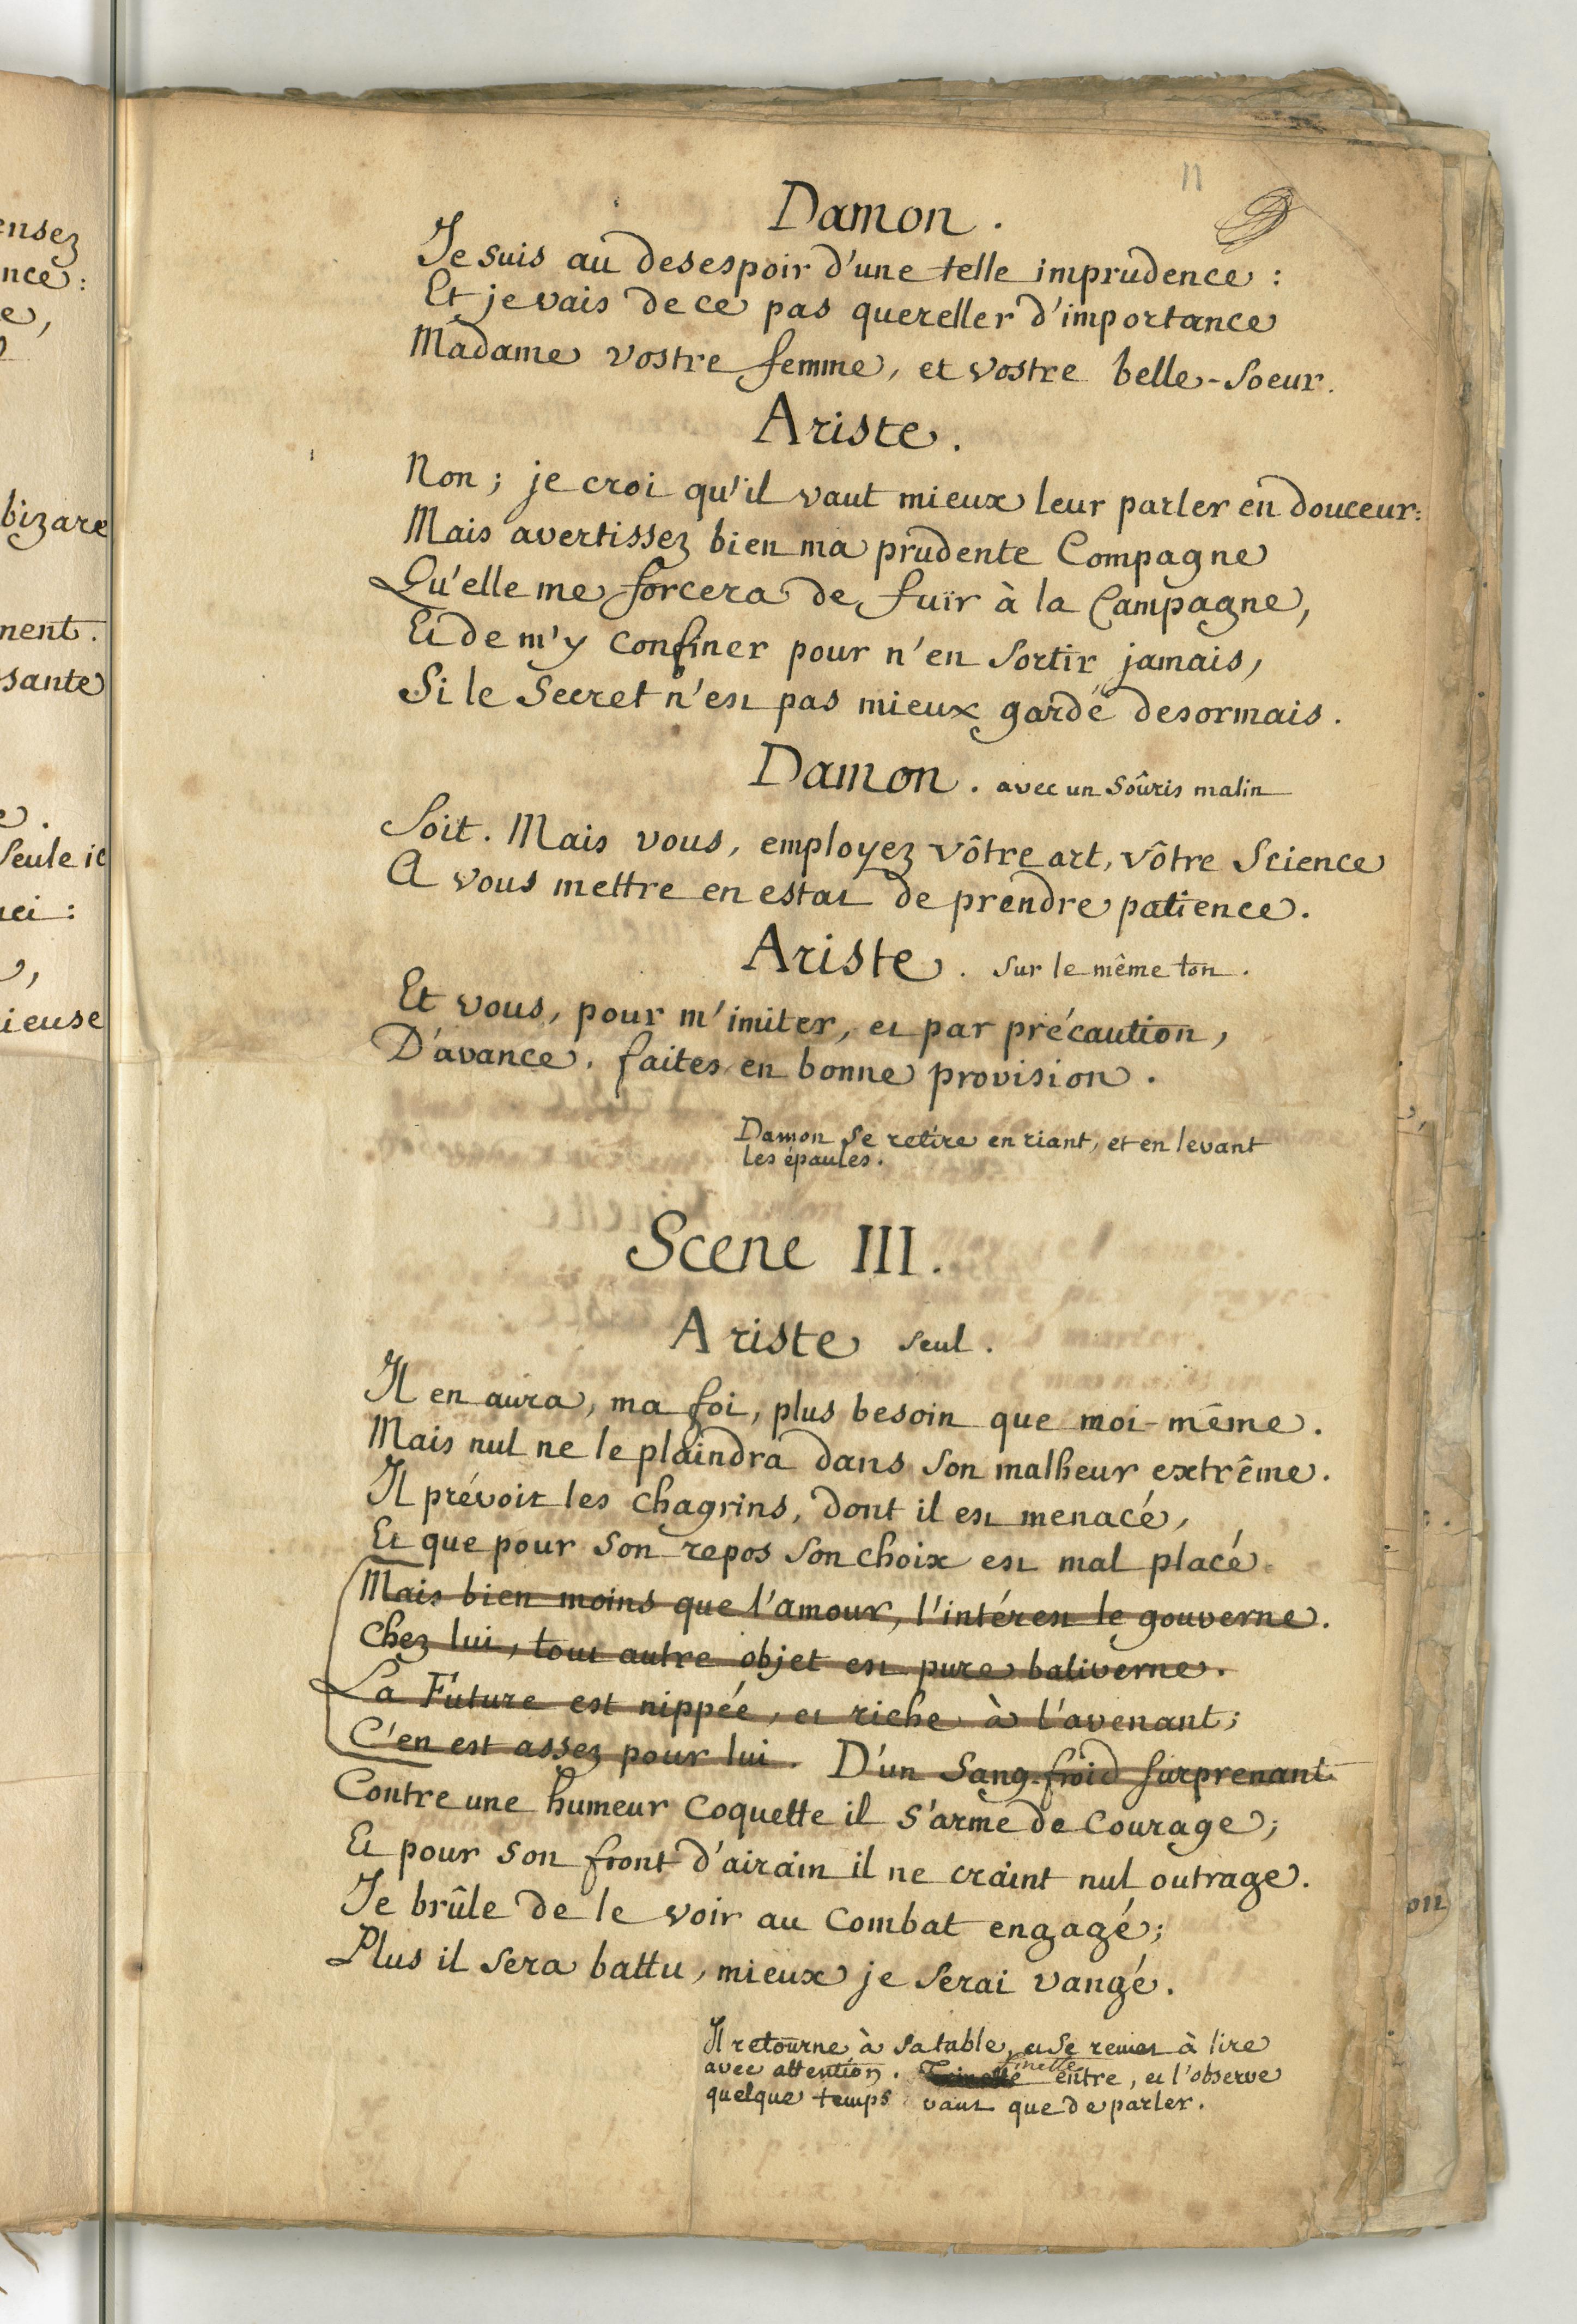 11
Damon.
Je suis au desespoir d'une telle imprudence :
Et je vais de ce pas quereller d'importance
Madame vostre femme, et vostre belle-soeur.
Ariste.
Non ; je croi qu'il vaut mieux leur parler en douceur :
Mais avertissez bien ma prudente Compagne
Qu'elle me forcera de fuïr à la Campagne,
Et de m'y confiner pour n'en sortir jamais,
Si le Secret n'est pas mieux gardé desormais.
Damon. avec un soûris malin
Soit. Mais vous, employez vôtre art, vôtre Science
A vous mettre en estat de prendre patience.
Ariste. sur le même ton.
Et vous, pour m'imiter, et par précaution,
D'avance, faites en bonne provision.
Damon se retire en riant, et en levant
les épaules.
Scene III.
Ariste seul.
Il en aura, ma foi, plus besoin que moi-même.
Mais nul ne le plaindra dans son malheur extrême.
Il prévoit les chagrins, dont il est menacé,
Et que pour son repos son choix est mal placé.
Mais bien moins que l'amour, l'intérest le gouverne.
Chez lui, tout autre objet est pure baliverne.
La Future est nippée, et riche à l'avenant;
C'en est assez pour lui. D'un Sang-froid surprenant
Contre une humeur Coquette il s'arme de Courage;
Et pour son front d'airain il ne craint nul outrage.
Je brûle de le voir au Combat engagé;
Plus il sera battu, mieux je serai vangé.
Il retourne à sa table, et se remet à lire
avec attention. finette entre, et l'observe
quelque temps vant que de parler.
ensez
nce :
e,
bizare
ment.
sante
e.
seule ic
ici :
e,
ieuse
on